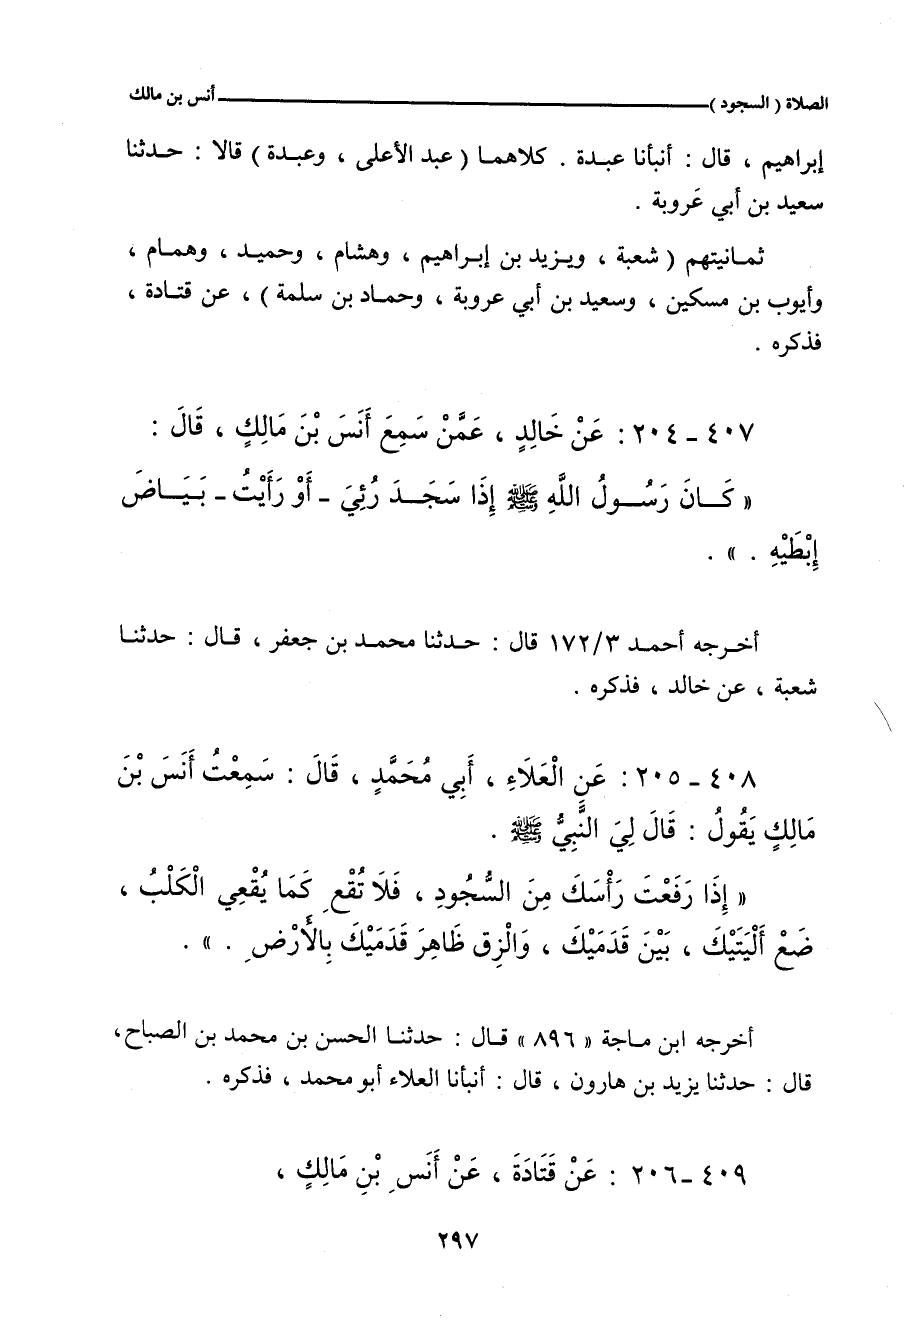 الصلاة ( السجود ) أنس بن مالك
إبراهيم ، قال : أنبأنا عبدة . كلاهما ( عبد الأعلى ، وعبدة ) قالا : حدثنا
سعيد بن أبي عَروبة .
ثمانيتهم ( شعبة ، ويزيد بن إبراهيم ، وهشام ، وحميد ، وهمام ،
وأيوب بن مسكين ، وسعيد بن أبي عروبة ، وحماد بن سلمة ) ، عن قتادة ،
فذكره .
٤٠٧ - ٢٠٤ : عَنْ خَالِدٍ ، عَمَّنْ سَمِعَ أَنَسَ بْنَ مَالِكٍ ، قَالَ :
« كَانَ رَسُولُ اللَّهِ ﷺ إِذَا سَجَدَ رُئِيَ - أَوْ رَأَيْتُ - بَيَاضَ
إِبْطَيْهِ . » .
أخرجه أحمد ١٧٢/٣ قال : حدثنا محمد بن جعفر ، قال : حدثنا
شعبة ، عن خالد ، فذكره .
٤٠٨ - ٢٠٥ : عَنِ الْعَلَاءِ ، أَبِي مُحَمَّدٍ ، قَالَ : سَمِعْتُ أَنَسَ بْنَ
مَالِكٍ يَقُولُ : قَالَ لِيَ النَّبِيُّ ﷺ .
« إِذَا رَفَعْتَ رَأْسَكَ مِنَ السُّجُودِ ، فَلَا تُقْعِ كَمَا يُقْعِي الْكَلْبُ ،
ضَعْ أَلْيَتَيْكَ ، بَيْنَ قَدَمَيْكَ ، وَالْزِق ظَاهِرَ قَدَمَيْكَ بِالأَرْضِ . » .
أخرجه ابن ماجة « ٨٩٦ » قال : حدثنا الحسن بن محمد بن الصباح،
قال : حدثنا يزيد بن هارون ، قال : أنبأنا العلاء أبو محمد ، فذكره .
٤٠٩ - ٢٠٦ : عَنْ قَتَادَةَ ، عَنْ أَنَسِ بْنِ مَالِكٍ ،
٢٩٧